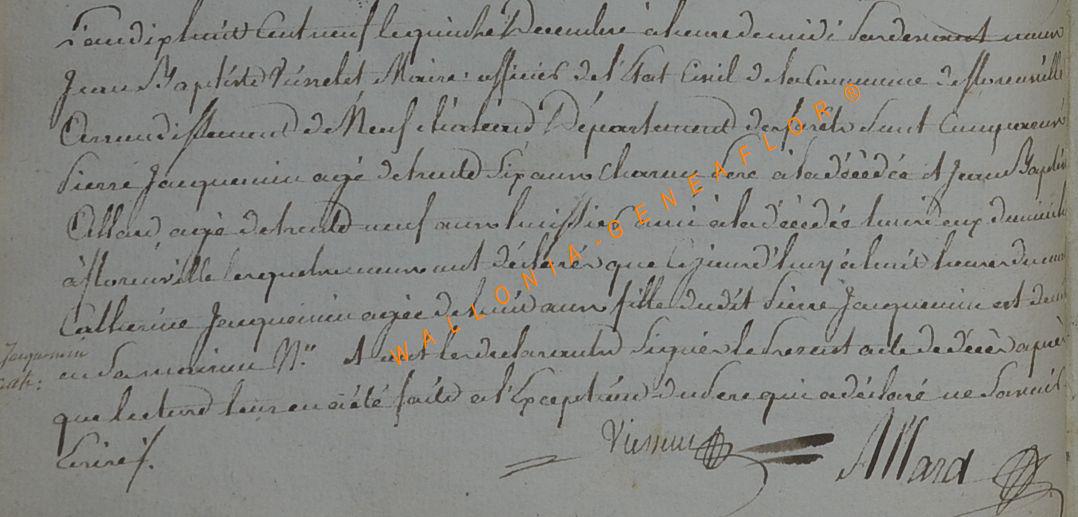 L'an dix huit Cent neuf le quinze Decembre à heure de midi Pardevant nous
Jean Baptiste Maire officier de l'Etat Civil de la Commune de florenville
Arrondissement de Neufchateau Département des forêts sont Comparus
Pierre Jacquemin agé de trente Six ans Père à la décédée et Jean Baptiste
Allard agé de trente neuf ans huissier ami à la décédée tous deux domiciliés
à florenville lesquels nous ont déclarés que Cejourd'huy à huit heures du
Catherine Jacquemin agée de huit ans fille dudit Pierre Jacquemin est
en Sa maison N.° et ont les declarants Signés le Present acte de décès après
que lecture leur en a été faite a l'Exception du Pere qui a déclaré ne Savoir
Ecrire.
Jacquemin
Cath:
Allard
WALLONIA-GENEAFLOR®